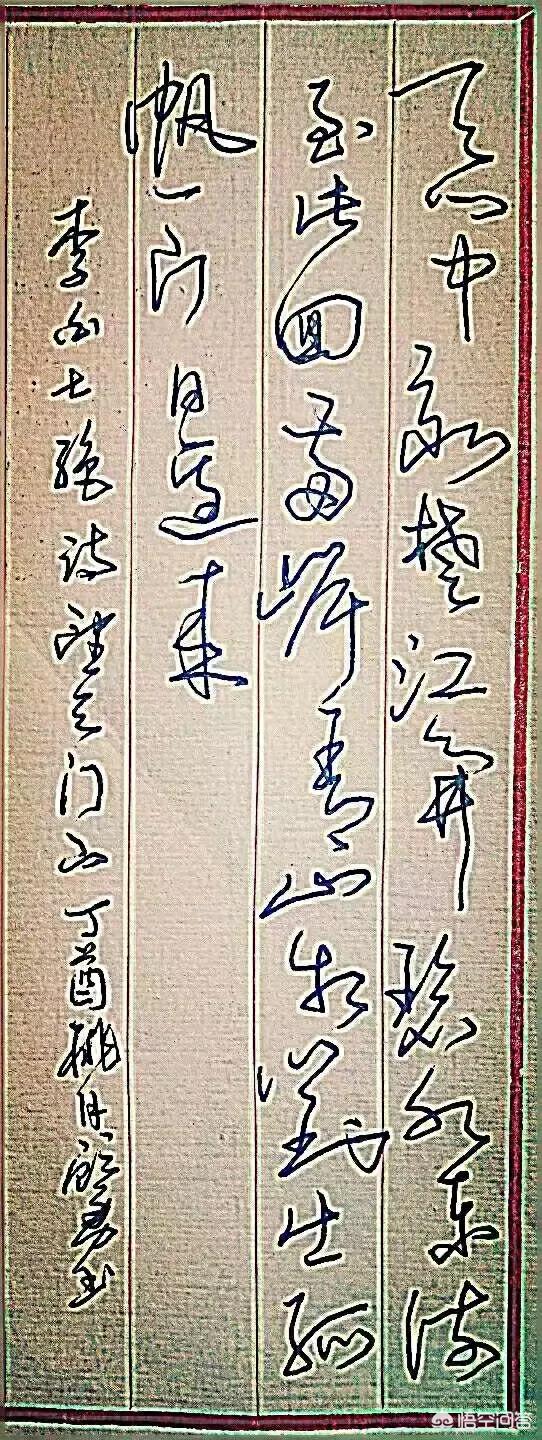 天门中断楚江開碧水东流
至此回兩岸青山相對出孤
帆一片日边来
李白七绝诗望天门山丁酉桃月
悟空问答